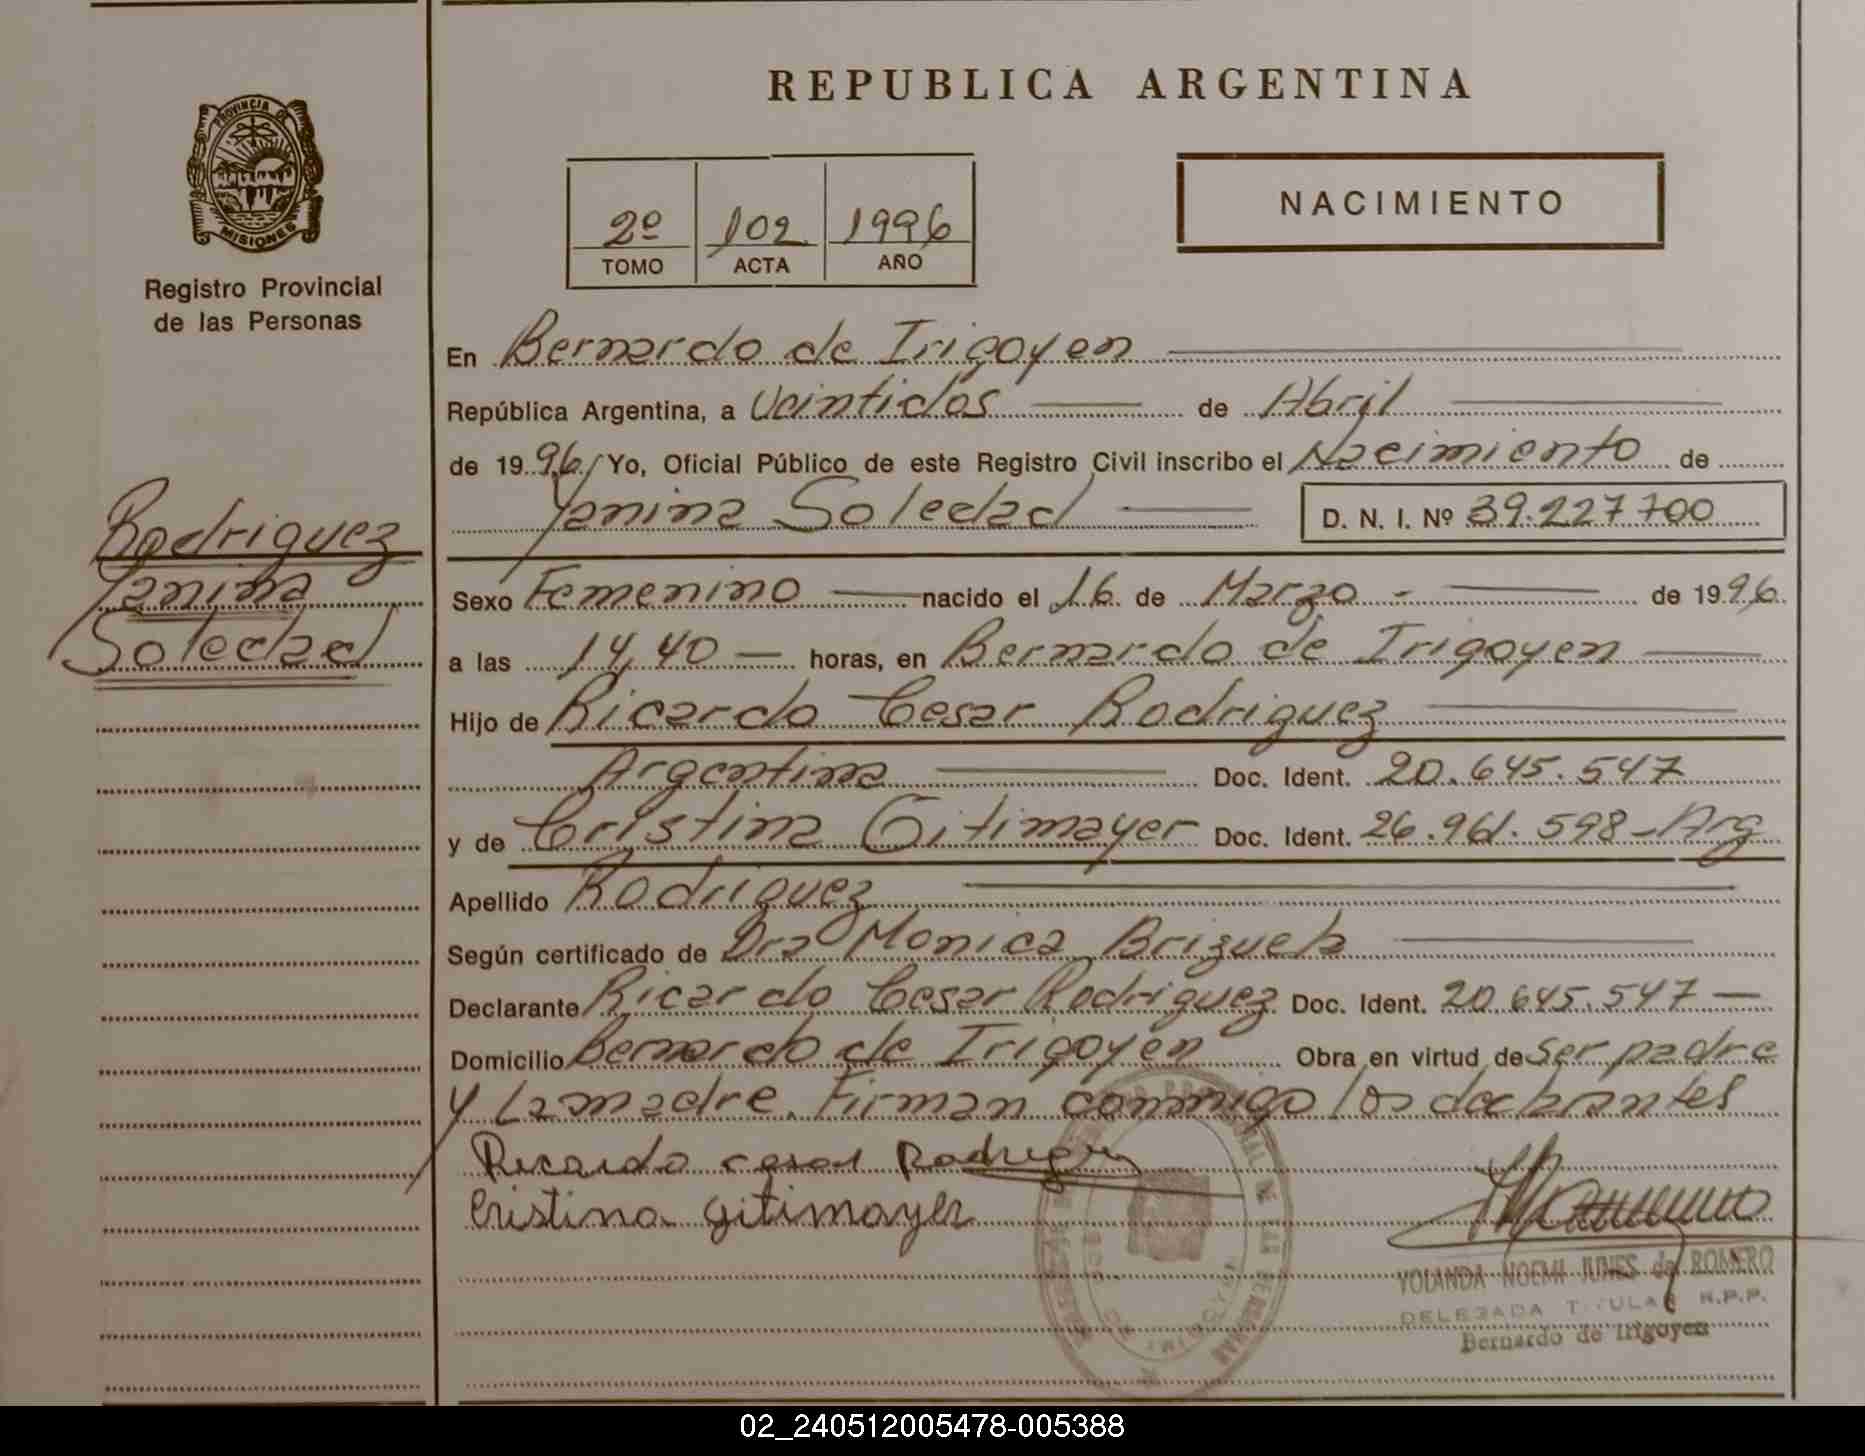 REPUBLICA ARGENTINA
PROVINCIA DE
MISIONES
Registro Provincial
de las Personas
2º 102 1996
TOMO ACTA AÑO
NACIMIENTO
En Bernardo de Irigoyen
República Argentina, a Veintidos de Abril
de 1996 Yo, Oficial Público de este Registro Civil inscribo el Nacimiento de
Yanina Soledad D. N. I. Nº 39.227700
Rodriguez
Yanina
Soledad
Sexo Femenino nacido el 16 de Marzo - de 1996
a las 14,40 horas, en Bernardo de Irigoyen
Hijo de Ricardo Cesar Rodriguez
Argentina Doc. Ident. 20.645.547
y de Cristina Gitimayer Doc. Ident. 26.961.598-Arg
Apellido Rodriguez
Según certificado de Dra Monica Brizuela
Declarante Ricardo Cesar Rodriguez Doc. Ident. 20.645.547
Domicilio Bernardo de Irigoyen Obra en virtud de ser padre
y La madre. Firman conmigo los declarantes
Ricardo cesar Rodriguez
Cristina gitimayer
YOLANDA NOEMI de ROMERO
DELEGADA TITULAR R.P.P.
Bernardo de Irigoyen
02_240512005478-005388